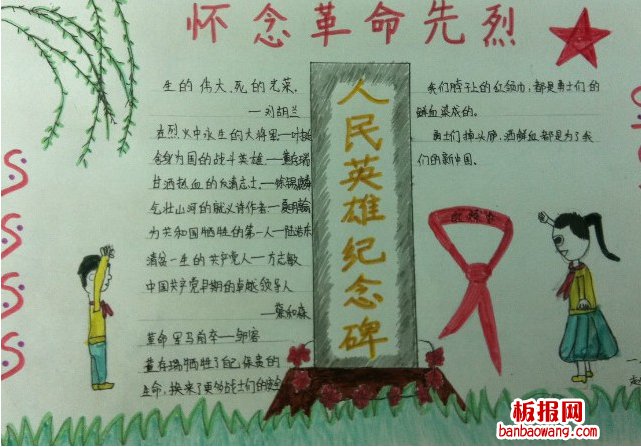 怀念革命先烈
生的伟大、死的光荣。
—刘胡兰
在烈火中永生的大将军—叶挺
舍身为国的战斗英雄—董存瑞
甘洒热血的红涛志士—徐锡麟
气壮山河的就义诗作者—夏明翰
为共和国牺牲的第一人—陆浩东
清贫一生的共产党人—方志敏
中国共产党早期的卓越领导人
—蔡和森
革命军马前卒—邹容
董存瑞牺牲了自己保贵的
生命,换来了更多战士们的安全
人民英雄纪念碑
我们脖子上的红领巾,都是勇士们的
鲜血染成的。
勇士们掉头颅,洒鲜血,都是为了我
们的新中国。
红领巾
板报网
banbaowang.com